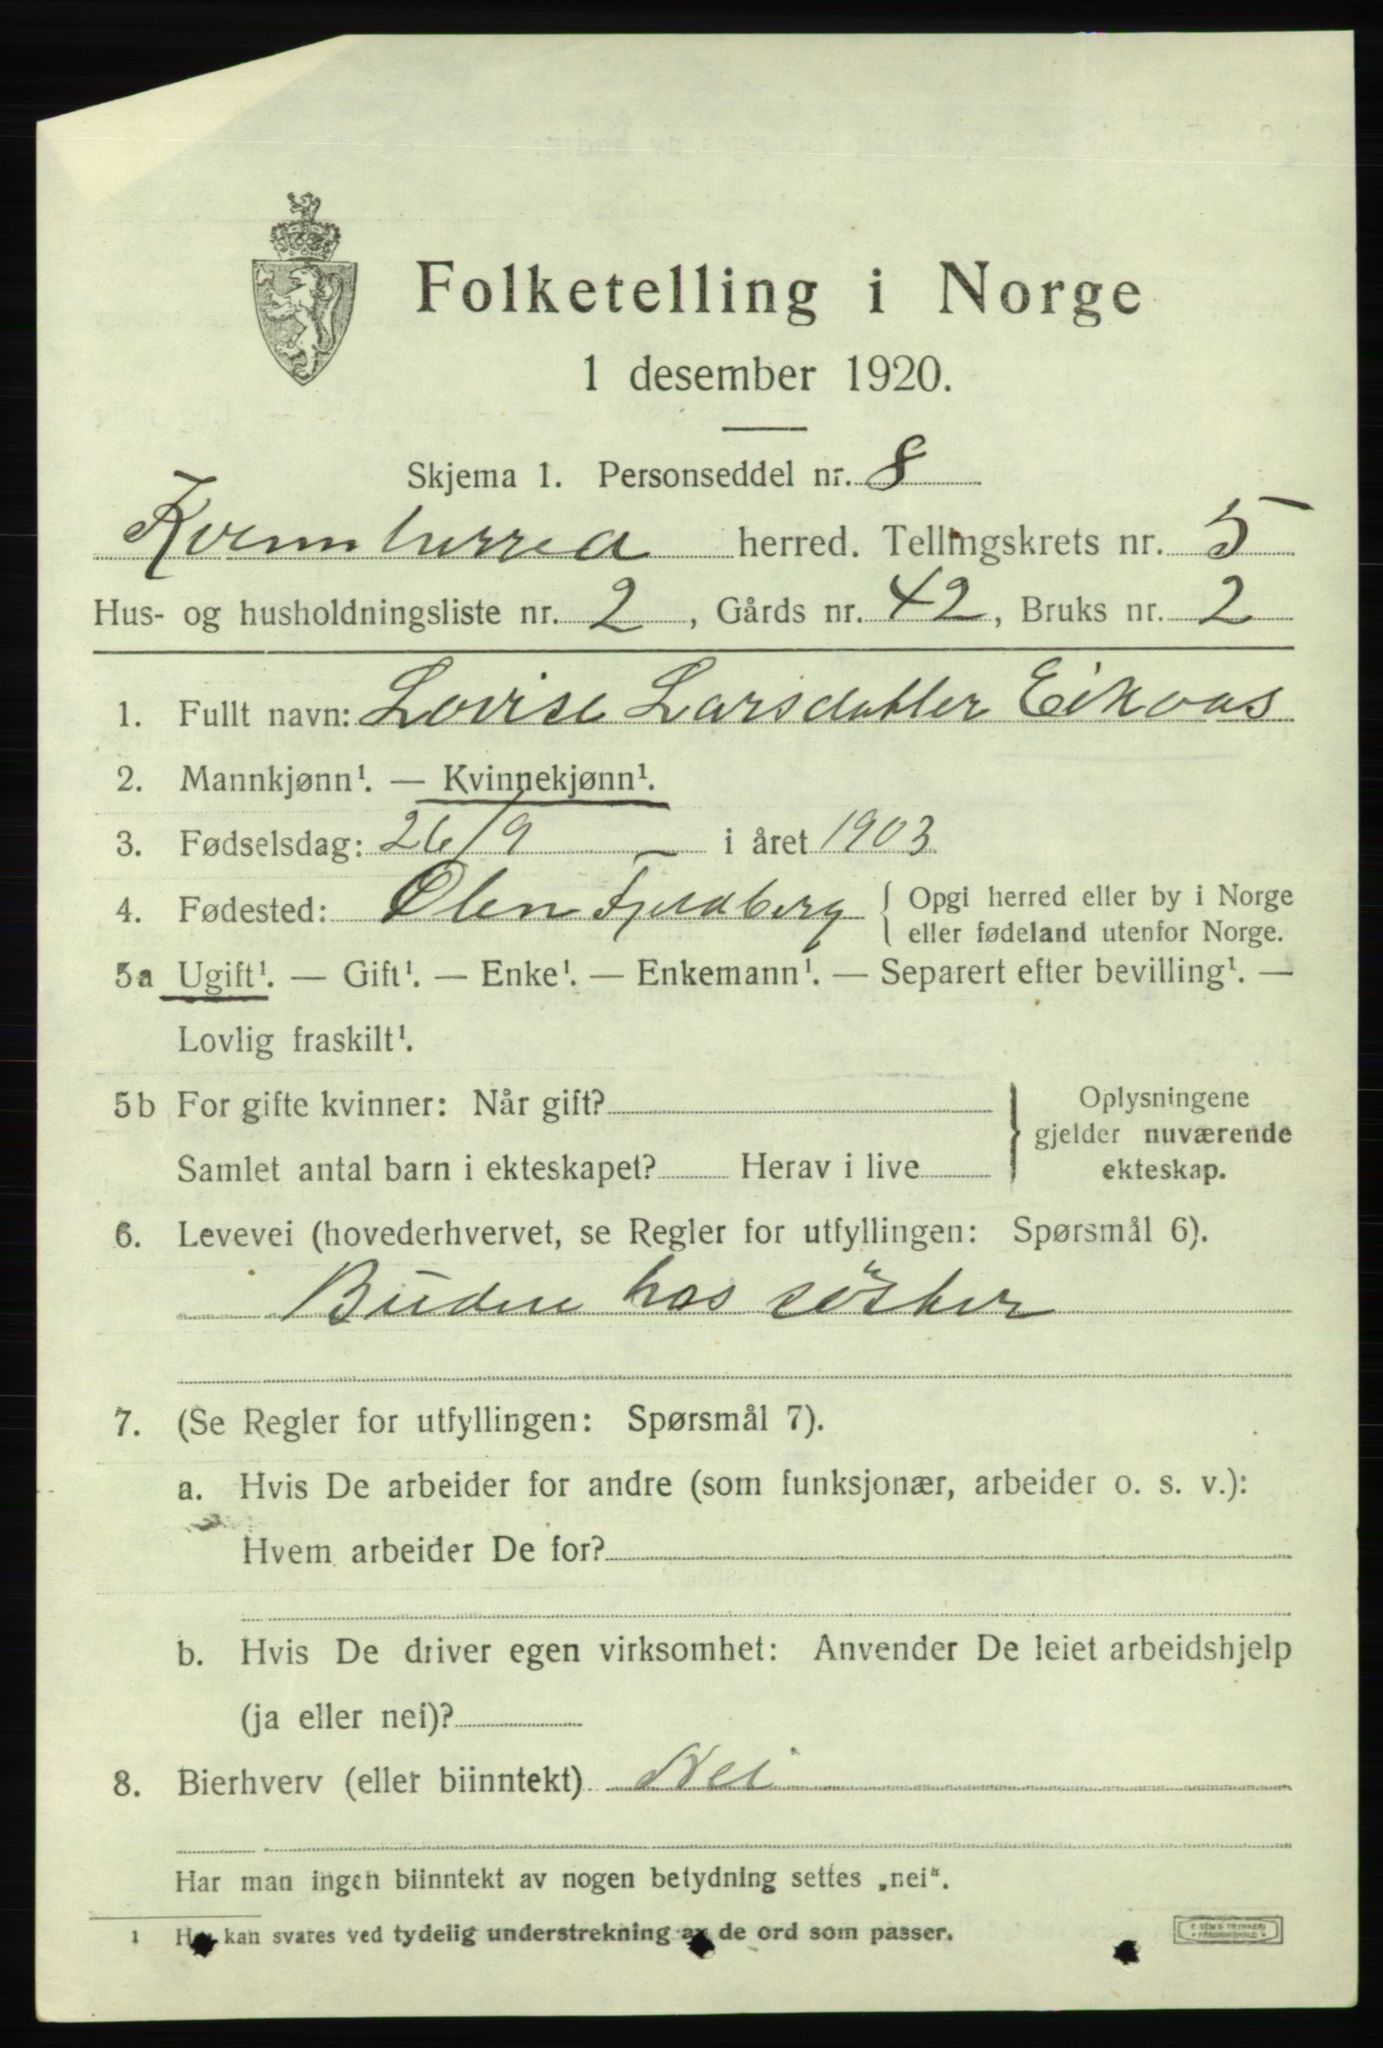 Folketelling i Norge
1 desember 1920.
Skjema 1. Personseddel nr. 8
Kvinnherred herred. Tellingskrets nr. 5
Hus- og husholdningsliste nr. 2, Gårds nr. 42, Bruks nr. 2
1. Fullt navn: Lovise Larsdatter Eikaas
2. Mannkjønn¹. — Kvinnekjønn¹.
3. Fødselsdag: 26/9 — i året 1903
4. Fødested: Ølen Fjeldberg { Opgi herred eller by i Norge
eller fødeland utenfor Norge.
5a Ugift¹. — Gift¹. — Enke¹. — Enkemann¹. — Separert efter bevilling¹. —
Lovlig fraskilt¹.
5b For gifte kvinner: Når gift?
Samlet antal barn i ekteskapet? Herav i live
} Oplysningene
gjelder nuværende
ekteskap.
6. Levevei (hovederhvervet, se Regler for utfyllingen: Spørsmål 6).
Budeie hos
7. (Se Regler for utfyllingen: Spørsmål 7).
a. Hvis De arbeider for andre (som funksjonær, arbeider o. s. v.):
Hvem arbeider De for?
b. Hvis De driver egen virksomhet: Anvender De leiet arbeidshjelp
(ja eller nei)?
8. Bierhverv (eller biinntekt) Nei
Har man ingen biinntekt av nogen betydning settes „nei“.
1 Her kan svares ved tydelig understrekning av de ord som passer.
E SEM'S TRYKKERI
FREDRIKSHALD